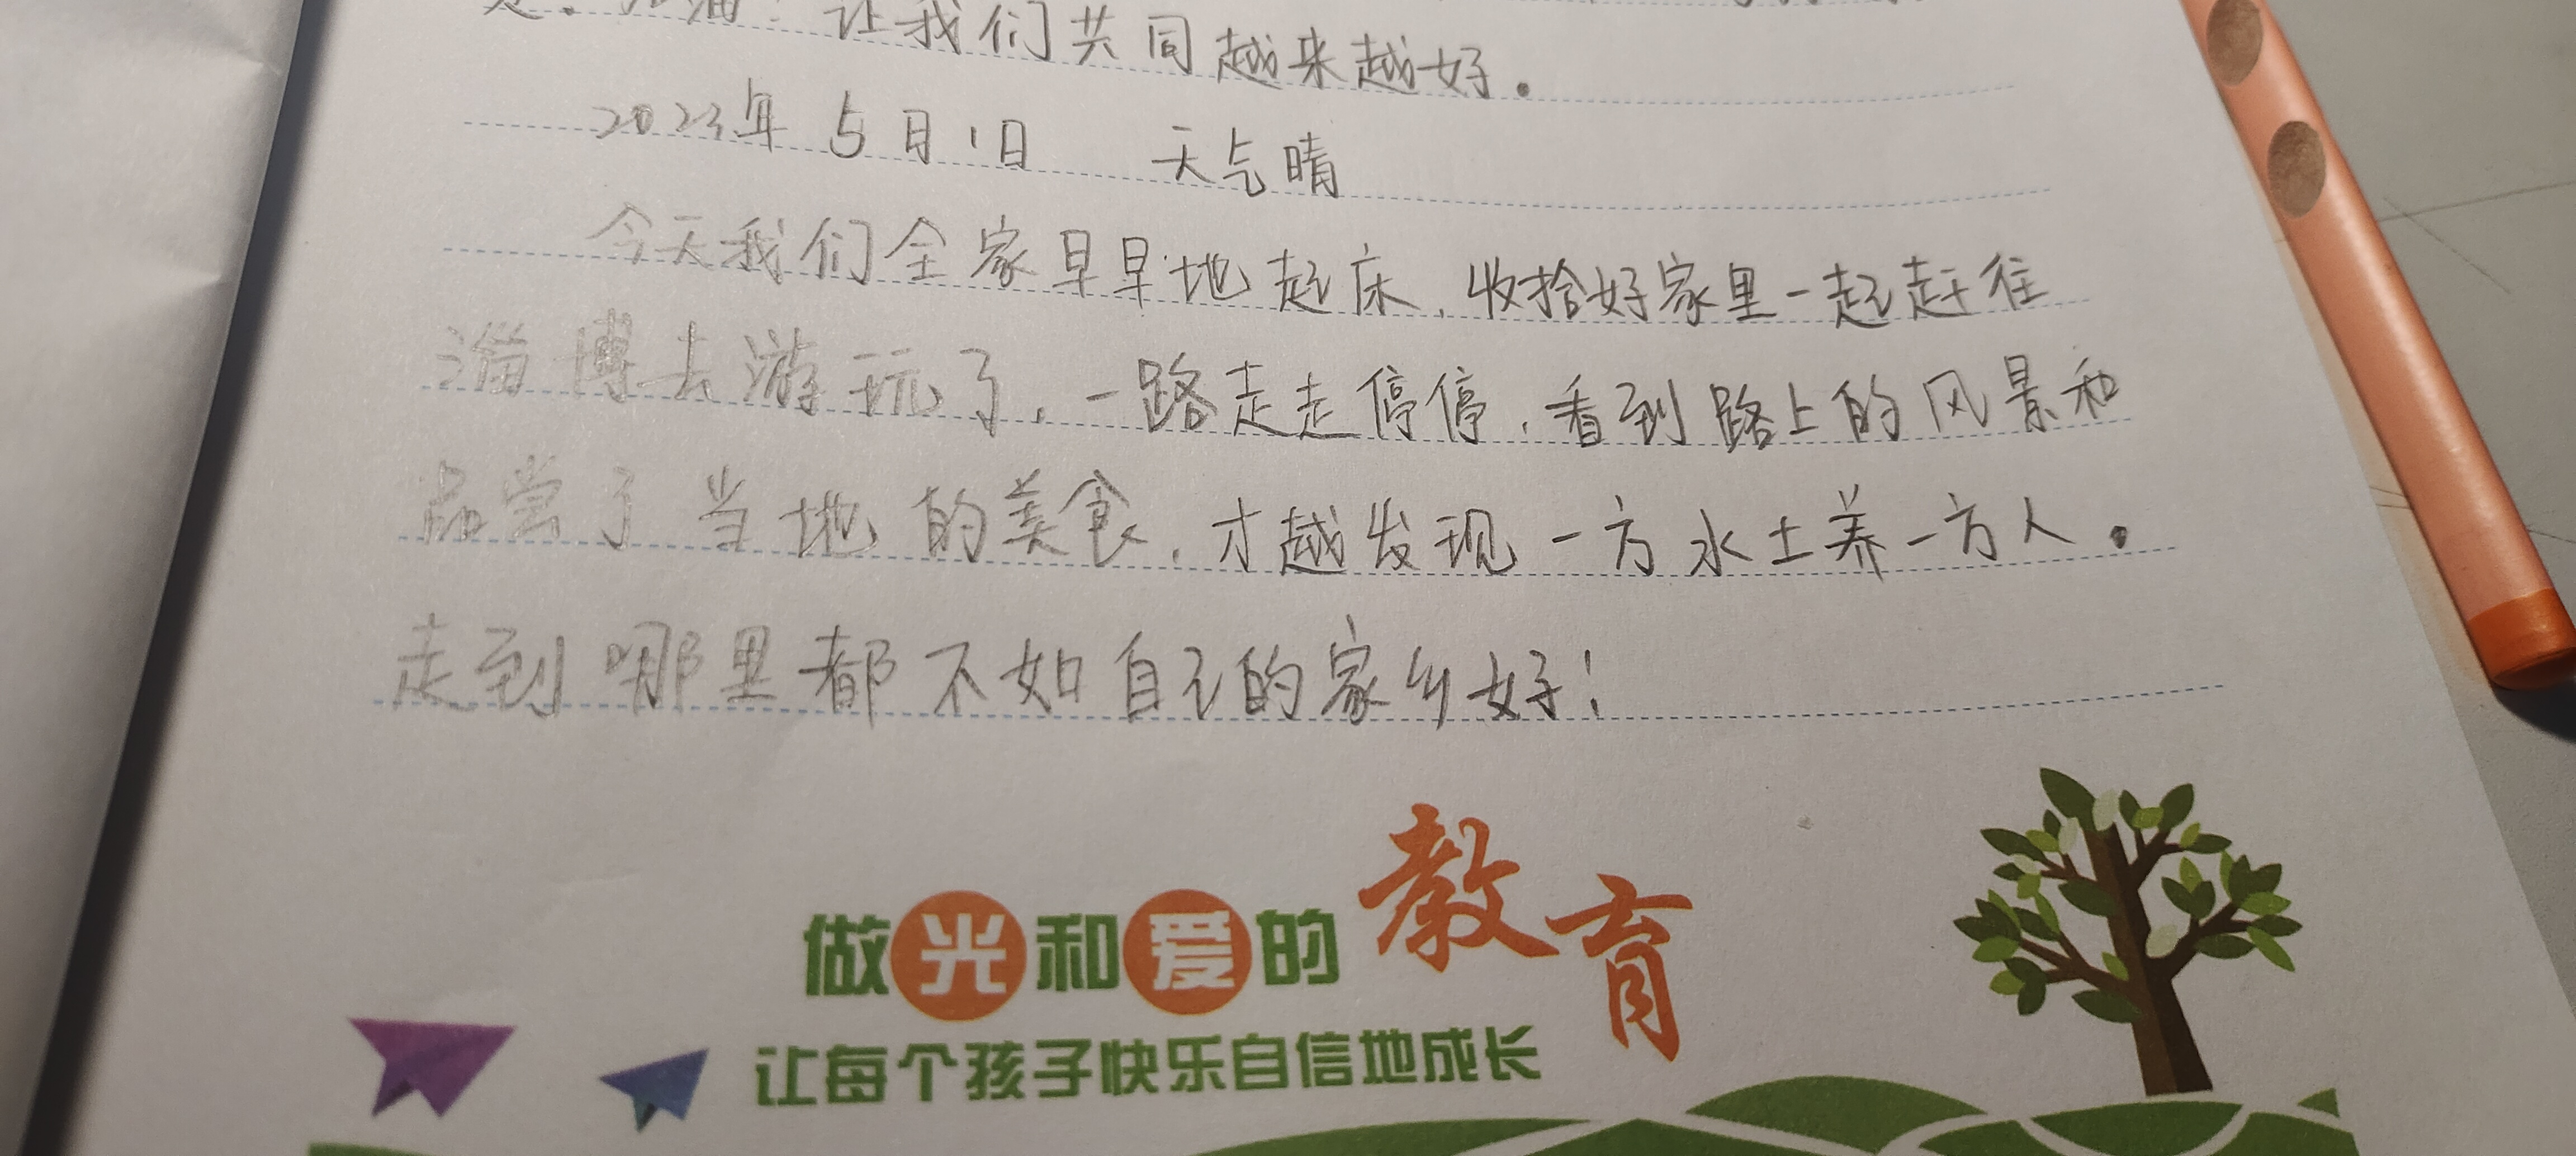 让我们共同越来越好。
2023年5月1日 天气晴
今天我们全家早早地起床,收拾好家里一起赶往
淄博去游玩了,一路走走停停,看到路上的风景和
品尝了当地的美食,才越发现一方水土养一方人。
走到哪里都不如自己的家乡好!
做光和爱的教育
让每个孩子快乐自信地成长